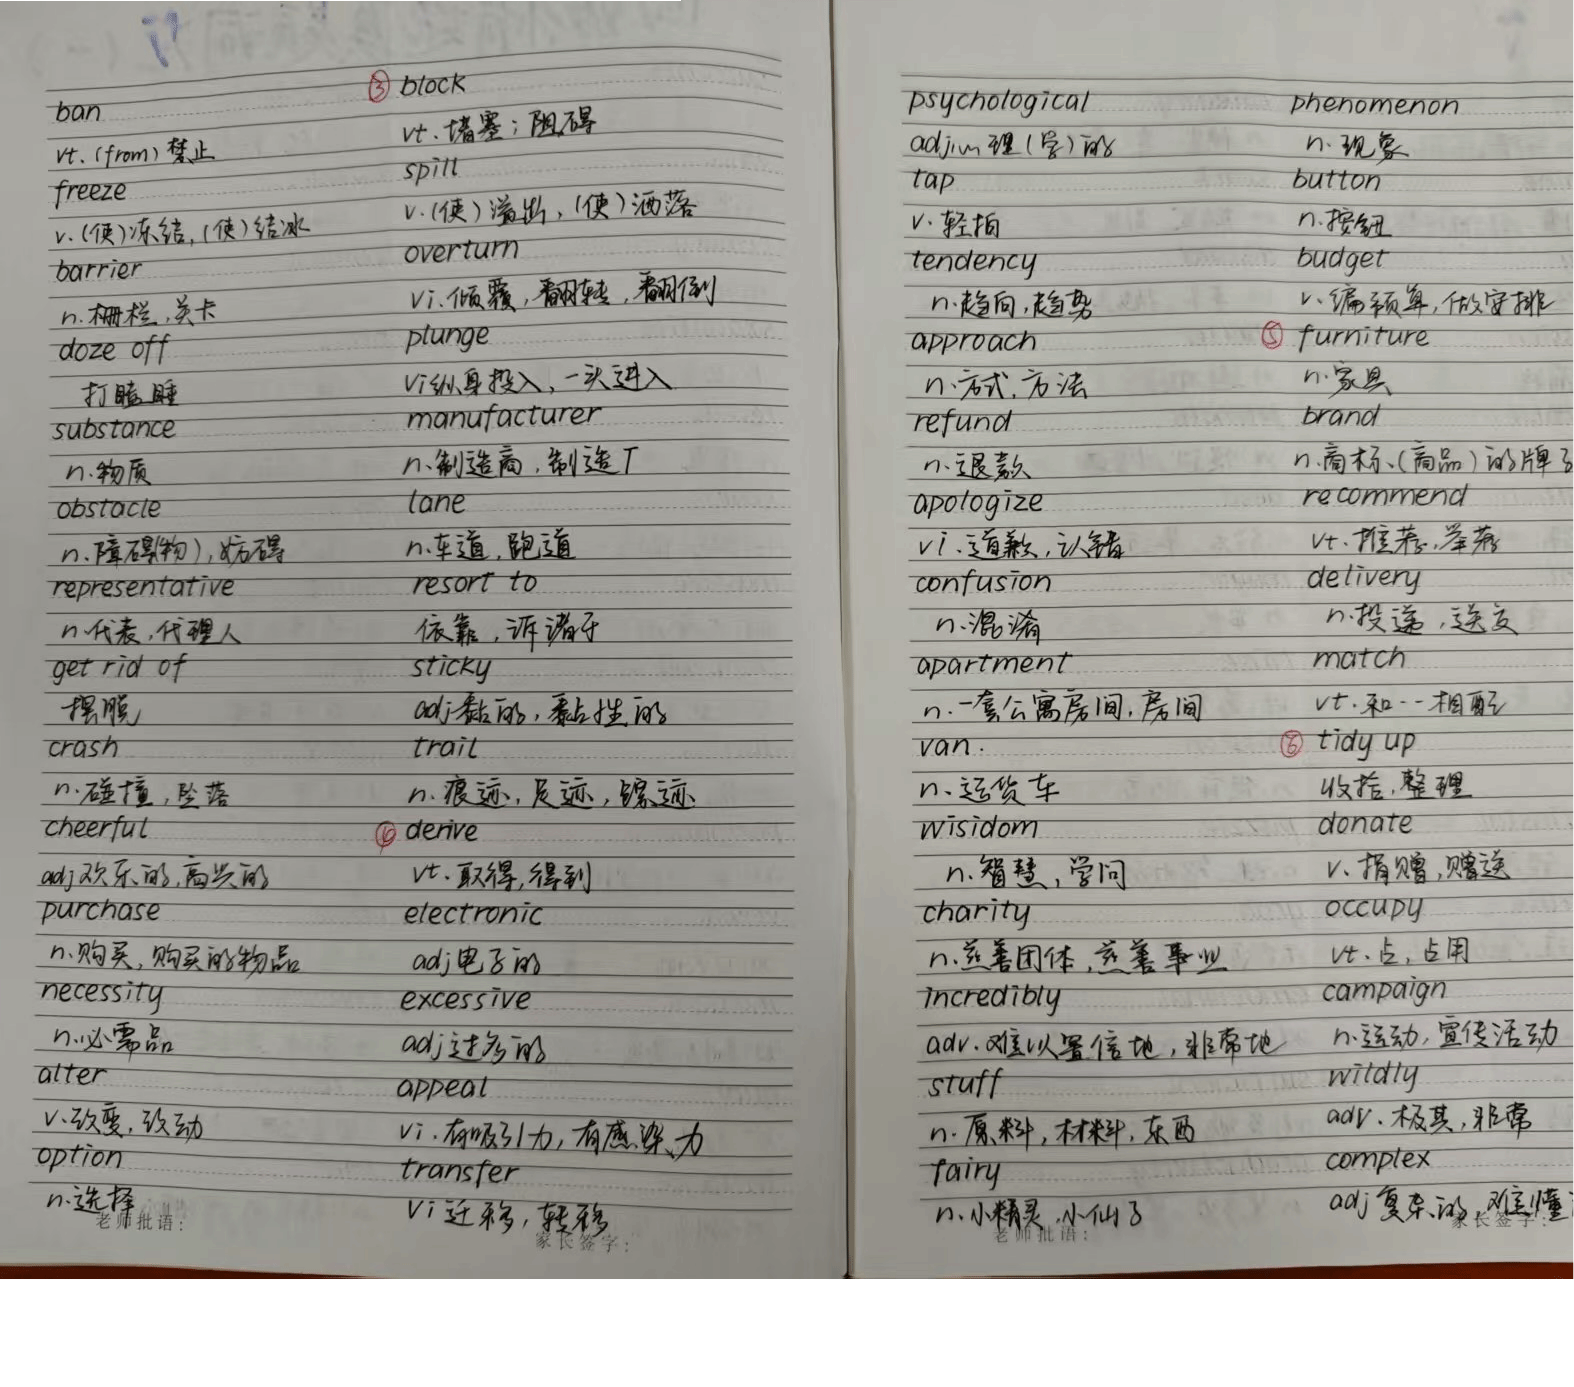 ban
vt.(from)禁止
freeze
v.(使)冻结,(使)结冰
barrier
n.栅栏,关卡
doze off
打瞌睡
substance
n.物质
obstacle
n.障碍(物),妨碍
representative
n.代表,代理人
get rid of
摆脱
crash
n.碰撞,坠落
cheerful
adj欢乐的,高兴的
purchase
n.购买,购买的物品
necessity
n.必需品
alter
v.改变,改动
option
n.选择
老师批语:
③ block
vt.堵塞;阻碍
spill
v.(使)溢出,(使)洒落
overturn
vi.倾覆,翻转,翻倒
plunge
vi纵身投入,一头进入
manufacturer
n.制造商,制造厂
lane
n.车道,跑道
resort to
依靠,诉诸于
sticky
adj黏的,黏性的
trail
n.痕迹,足迹,踪迹
④ derive
vt.取得,得到
electronic
adj电子的
excessive
adj过多的
appeal
vi.有吸引力,有感染力
transfer
vi迁移,转移
家长签字:
psychological
adj心理(学)的
tap
v.轻拍
tendency
n.趋向,趋势
approach
n.方式,方法
refund
n.退款
apologize
vi.道歉,认错
confusion
n.混淆
apartment
n.一套公寓房间,房间
van.
n.运货车
wisidom
n.智慧,学问
charity
n.慈善团体,慈善事业
incredibly
adv.难以置信地,非常地
stuff
n.原料,材料,东西
fairy
n.小精灵,小仙子
老师批语:
phenomenon
n.现象
button
n.按钮
budget
v.编预算,做安排
⑤ furniture
n.家具
brand
n.商标、(商品)的牌子
recommend
vt.推荐,举荐
delivery
n.投递,送交
match
vt.和…相配
⑥ tidy up
收拾,整理
donate
v.捐赠,赠送
occupy
vt.占,占用
campaign
n.运动,宣传活动
wildly
adv.极其,非常
complex
adj复杂的,难懂
家长签字: